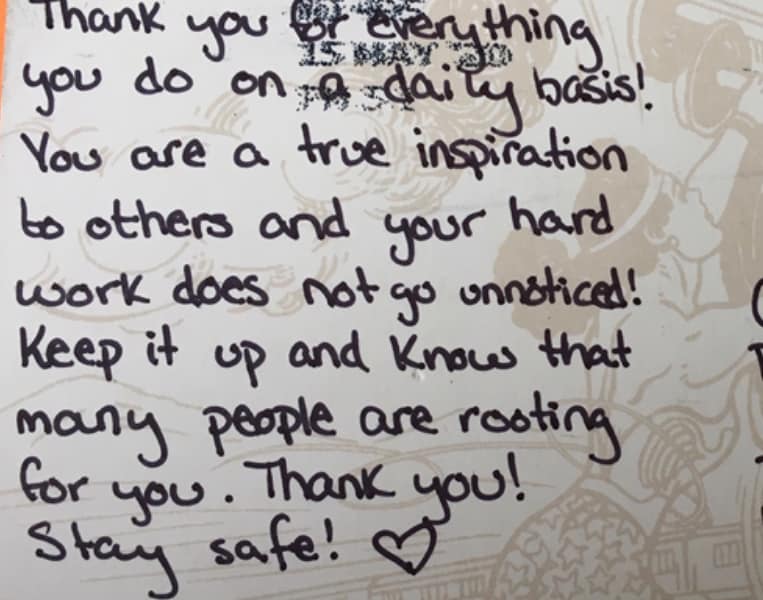 Thank you for everything
15 MAY
you do on a daily basis!
You are a true inspiration
to others and your hard
work does not go unnoticed!
Keep it up and know that
many people are rooting
for you. Thank you!
Stay safe! ♡